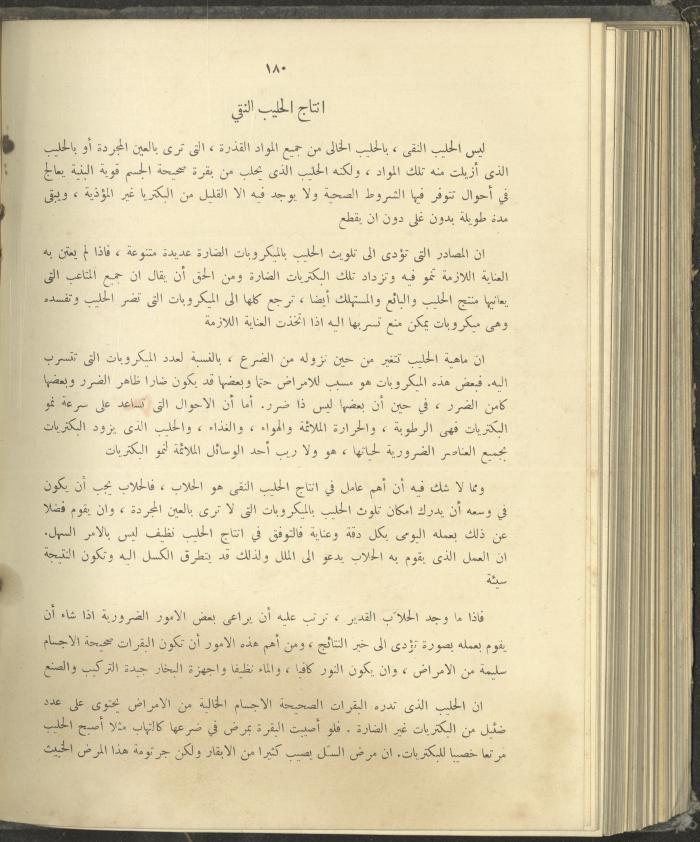 ١٨٠
انتاج الحليب النقي
ليس الحليب النقى ، بالحليب الخالى من جميع المواد القذرة ، التى ترى بالعين المجردة أو بالحليب
الذى أزيلت منه تلك المواد ، ولكنه الحليب الذى يحلب من بقرة صحيحة الجسم قوية البنية يعالج
في أحوال تتوفر فيها الشروط الصحية ولا يوجد فيه الا القليل من البكتريا غير المؤذية ، ويبقى
مدة طويلة بدون غلى دون ان يقطع
ان المصادر التى تؤدى الى تلويث الحليب بالميكروبات الضارة عديدة متنوعة ، فاذا لم يعتن به
العناية اللازمة تنمو فيه وتزداد تلك البكتريات الضارة ومن الحق أن يقال ان جميع المتاعب التى
يعانيها منتج الحليب والبائع والمستهلك أيضا ، ترجع كلها الى الميكروبات التى تضر الحليب وتفسده
وهى ميكروبات يمكن منع تسربها اليه اذا اتخذت العناية اللازمة
ان ماهية الحليب تتغير من حين نزوله من الضرع ، بالنسبة لعدد الميكروبات التى تتسرب
اليه. فبعض هذه الميكروبات هو مسبب للامراض حتما وبعضها قد يكون ضارا ظاهر الضرر وبعضها
كامن الضرر ، في حين أن بعضها ليس ذا ضرر. أما أن الاحوال التى تساعد على سرعة نمو
البكتريات فهى الرطوبة ، والحرارة الملائمة والهواء ، والغذاء ، والحليب الذى يزود البكتريات
بجميع العناصر الضرورية لحياتها ، هو ولا ريب أحد الوسائل الملائمة لنمو البكتريات
ومما لا شك فيه أن أهم عامل في انتاج الحليب النقى هو الحلاب ، فالحلاب يجب أن يكون
في وسعه أن يدرك امكان تلوث الحليب بالميكروبات التى لا ترى بالعين المجردة ، وان يقوم فضلا
عن ذلك بعمله اليومى بكل دقة وعناية فالتوفق في انتاج الحليب نظيف ليس بالامر السهل.
ان العمل الذى يقوم به الحلاب يدعو الى الملل ولذلك قد يتطرق الكسل اليه وتكون النتيجة
سيئة
فاذا ما وجد الحلاب القدير ، ترتب عليه أن يراعى بعض الامور الضرورية اذا شاء أن
يقوم بعمله بصورة تؤدى الى خير النتائج ، ومن أهم هذه الامور أن تكون البقرات صحيحة الاجسام
سليمة من الامراض ، وان يكون النور كافيا ، والماء نظيفا واجهزة البخار جيدة التركيب والصنع
ان الحليب الذى تدره البقرات الصحيحة الاجسام الخالية من الامراض يحتوى على عدد
ضئيل من البكتريات غير الضارة . فلو أصيبت البقرة بمرض في ضرعها كالتهاب مثلا أصبح الحليب
مرتعا خصيبا للبكتريات. ان مرض السل يصيب كثيرا من الابقار ولكن جرثومة هذا المرض الخبيث